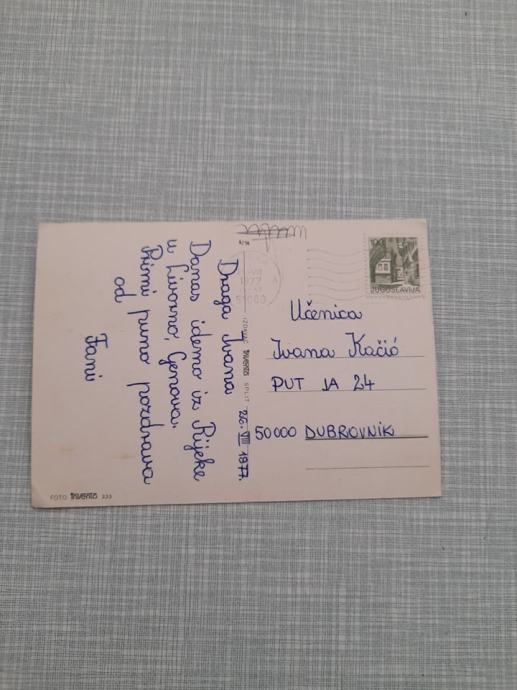 Draga Ivana
Danas idemo iz Rijeke
u Livorno, Genova.
Primi puno pozdrava
od
Fani
26. VIII 1977.
IZDAVAČ SPLIT
1977
51000
JUGOSLAVIJA
Učenica
Ivana Kačić
PUT JA 24
50000 DUBROVNIK
FOTO 333